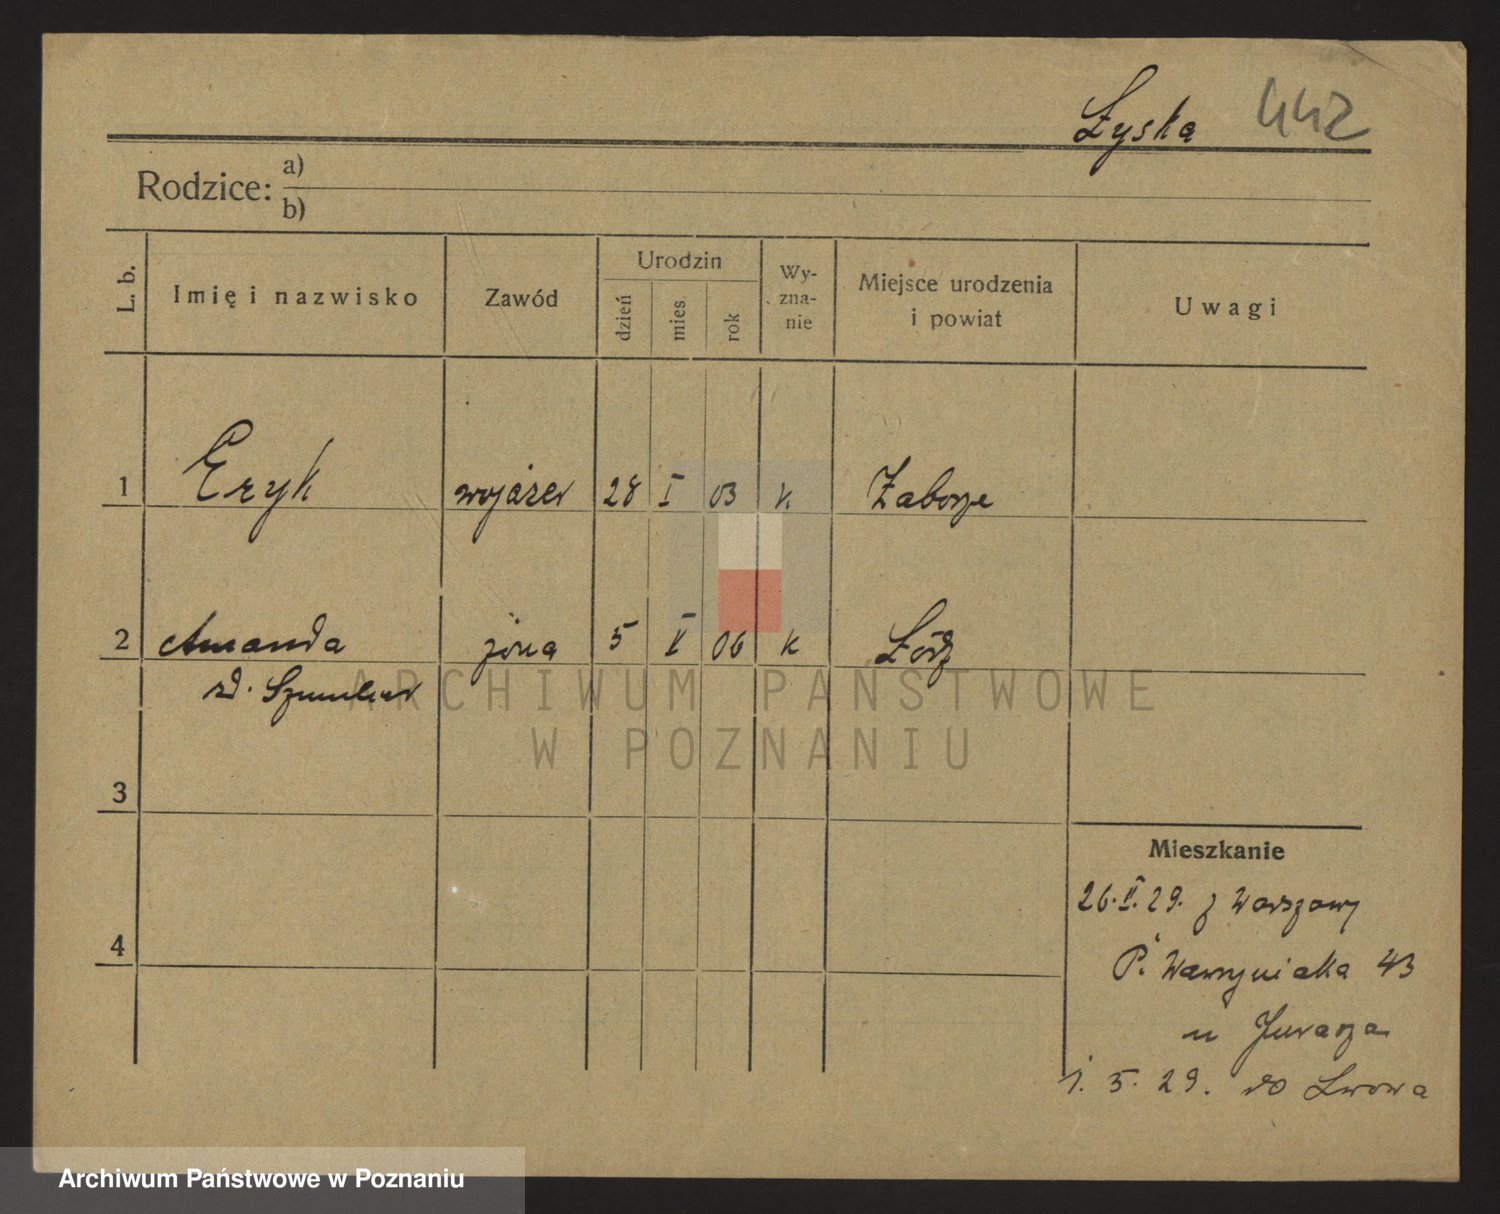 Łyska 442
Rodzice: a)
b)
L. b. Imię i nazwisko Zawód Urodzin dzień mies. rok Wy-zna-nie Miejsce urodzenia i powiat Uwagi
1 Eryk wojażer 28 I 03 k Zaborze
2 Amanda żona 5 V 06 k Łódź
zd.
ARCHIWUM PAŃSTWOWE
W POZNANIU
3
Mieszkanie
26. 29. z Warszawy
4
P. Wawrzyniaka 43
u Juracza
1. 5. 29. do Lwowa
Archiwum Państwowe w Poznaniu